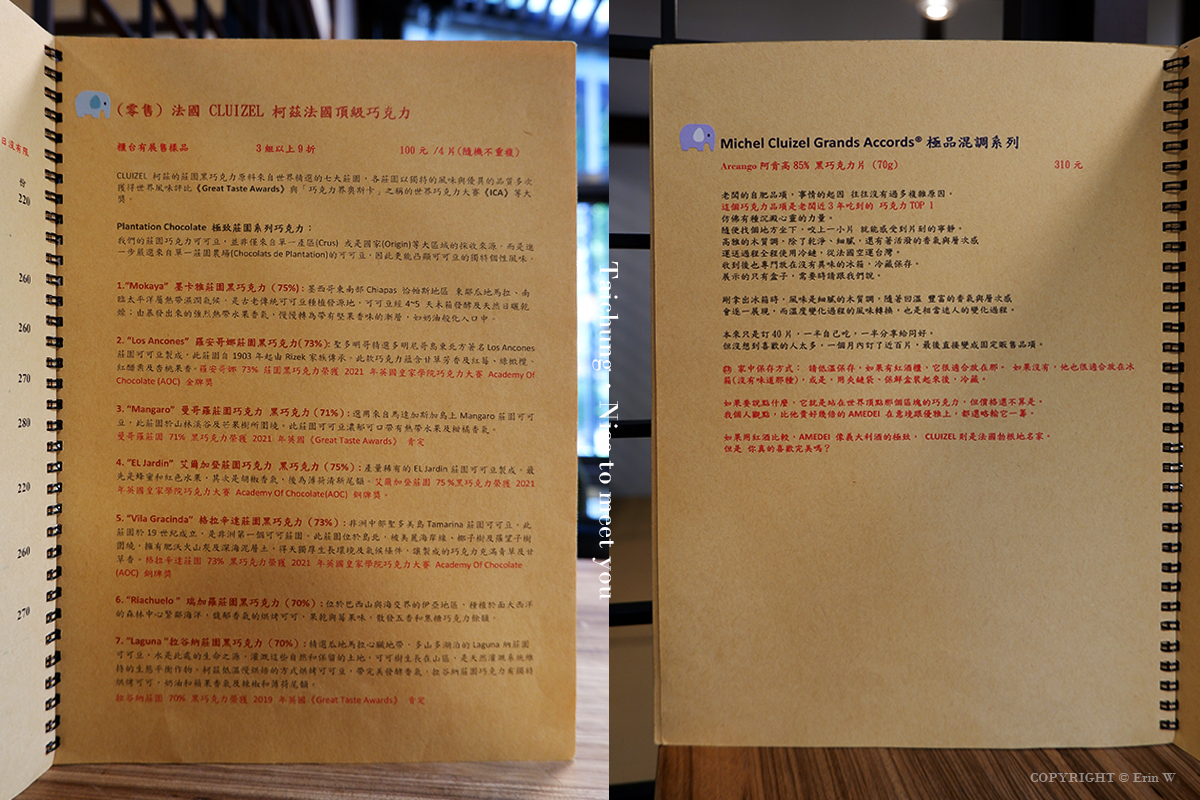 日沒有限
份
220
260
260
270
280
220
260
270
(零售) 法國 CLUIZEL 柯茲法國頂級巧克力
櫃台有展售樣品 3 組以上 9 折 100 元 /4 片(隨機不重複)
CLUIZEL 柯茲的莊園黑巧克力原料來自世界精選的七大莊園，各莊園以獨特的風味與優異的品質多次
獲得世界風味評比《Great Taste Awards》與「巧克力界奧斯卡」之稱的世界巧克力大賽《ICA》等大
獎。
Plantation Chocolate 極致莊園系列巧克力：
我們的莊園巧克力可可豆，並非僅來自單一產區(Crus) 或是國家(Origin)等大區域的採收來源，而是進
一步嚴選來自單一莊園農場(Chocolats de Plantation)的可可豆，因此更能凸顯可可豆的獨特個性風味。
1."Mokaya" 墨卡雅莊園黑巧克力 (75%)：墨西哥東南部 Chiapas 恰帕斯地區 東鄰瓜地馬拉、南
臨太平洋屬熱帶濕潤氣候，是古老傳統可可豆種植發源地，可可豆經 4~5 天木箱發酵及天然日曬乾
燥；由基發出來的強烈熱帶水果香氣，慢慢轉為帶有堅果香味的漸層，如奶油般化入口中。
2. "Los Ancones" 羅安哥娜莊園黑巧克力(73%)：聖多明哥精選多明尼哥島東北方著名 Los Ancones
莊園可可豆製成，此莊園自 1903 年起由 Rizek 家族傳承，此款巧克力蘊含甘草芳香及紅莓、綠橄欖、
紅醋栗及杏桃果香。羅安哥娜 73% 莊園巧克力榮獲 2021 年英國皇家學院巧克力大賽 Academy Of
Chocolate (AOC) 金牌獎
3. "Mangaro" 曼哥羅莊園巧克力 黑巧克力 (71%)：選用來自馬達加斯加島上 Mangaro 莊園可可
豆，此莊園於山林溪谷及芒果樹所圍繞，此莊園可可豆濃郁可口帶有熱帶水果及柑橘香氣。
曼哥羅莊園 71% 黑巧克力榮獲 2021 年英國《Great Taste Awards》 肯定
4. "EL Jardin" 艾爾加登莊園巧克力 黑巧克力 (75%)：產量稀有的 EL Jardin 莊園可可豆製成。最
先是蜂蜜和紅色水果，其次是胡椒香氣，後為薄荷清新尾韻。艾爾加登莊園 75%黑巧克力榮獲 2021
年英國皇家學院巧克力大賽 Academy Of Chocolate(AOC) 銅牌獎。
5. "Vila Gracinda" 格拉辛達莊園黑巧克力 (73%)：非洲中部聖多美島 Tamarina 莊園可可豆，此
莊園於 19 世紀成立，是非洲第一個可可莊園。此莊園位於島北，被美麗海岸線、椰子樹及羅望子樹
圍繞，擁有肥沃火山灰及深海泥層土，得天獨厚生長環境及氣候條件，讓製成的巧克力充滿青草及甘
草香。格拉辛達莊園 73% 黑巧克力榮獲 2021 年英國皇家學院巧克力大賽 Academy Of Chocolate
(AOC) 銅牌獎
6. "Riachuelo" 瑞加羅莊園黑巧克力 (70%)：位於巴西山與海交界的伊亞地區，種植於面大西洋
的森林中心緊鄰海洋，馥郁香氣的烘烤可可、果乾與莓果味，散發五香和黑糖巧克力餘韻。
7. "Laguna"拉谷納莊園黑巧克力 (70%)：精選瓜地馬拉心臟地帶，多山多湖泊的 Laguna 納莊園
可可豆，水是此處的生命之源，灌溉這些自然和保留的土地，可可樹生長在山區，是天然灌溉系統維
持的生態平衡作物。柯茲低溫慢烘焙的方式烘烤可可豆，帶完美發酵香氣，拉谷納莊園巧克力有獨特
烘烤可可，奶油和蘋果香氣及辣椒和薄荷尾韻。
拉谷納莊園 70% 黑巧克力榮獲 2019 年英國《Great Taste Awards》 肯定
Taichung · Nice to meet you
Michel Cluizel Grands Accords® 極品混調系列
Arcango 阿肯高 85% 黑巧克力片 (70g) 310 元
老闆的自肥品項，事情的起因 往往沒有過多複雜原因。
這個巧克力品項是老闆近 3 年吃到的 巧克力 TOP 1
你彷有種沉殿心靈的力量。
隨便找個地方坐下，咬上一小片 就能感受到片刻的寧靜。
高雅的木質調，除了乾淨、細膩，還有著活潑的香氣與層次感
運送過程全程使用冷鏈，從法國空運台灣。
收到後也專門放在沒有異味的冰箱，冷藏保存。
展示的只有盒子，需要時請跟我們說。
剛拿出冰箱時，風味是細膩的木質調，隨著回溫 豐富的香氣與層次感
會逐一展現，而溫度變化過程的風味轉換，也是相當迷人的變化過程。
本來只是訂 40 片，一半自己吃，一半分享給同好。
但沒想到喜歡的人太多，一個月內訂了近百片，最後直接變成固定販售品項。
家中保存方式： 請低溫保存，如果有紅酒櫃，它很適合放在那。 如果沒有，他也很適合放在冰
箱(沒有味道那種)，或是，用夾鏈袋、保鮮盒裝起來後，冷藏。
如果要說點什麼，它就是站在世界頂點那個區塊的巧克力，但價格還不算是。
我個人觀點，比他貴好幾倍的 AMEDEI 在意境跟優雅上，都還略輸它一籌。
如果用紅酒比較，AMEDEI 像義大利酒的極致， CLUIZEL 則是法國勃根地名家。
但是 你真的喜歡完美嗎？
COPYRIGHT © Erin W